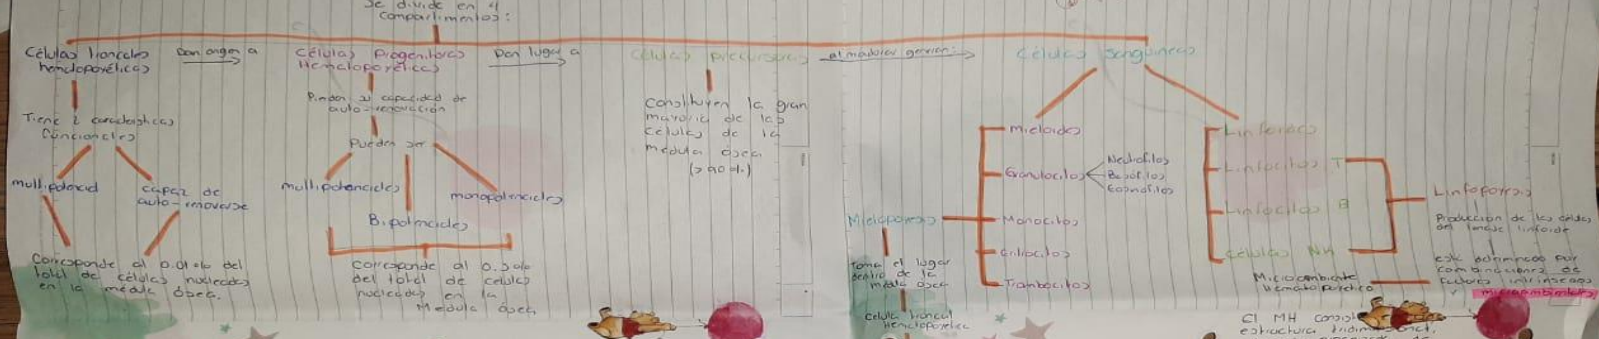 Se divide en 4
compartimentos:
Células troncales
hematopoyéticas
Dan origen a
Células Progenitoras
Hematopoyéticas
Dan lugar a
Células precursoras
al madurar generan:
Células Sanguíneas
Tiene 2 características
funcionales
multipotencial
capaz de
auto-renovarse
Corresponde al 0.01% del
total de células nucleadas
en la médula ósea.
Pierden su capacidad de
auto-renovación
Pueden ser
multipotenciales
Bipotenciales
monopotenciales
corresponde al 0.5%
del total de celulas
nucleadas en la
Medula ósea
constituyen la gran
mayoría de las
células de la
médula ósea
(>90%)
Mielopoyesis
Toma el lugar
dentro de la
médula ósea
Celula troncal
Hematopoyetica
mieloides
Granulocitos
Neutrofilos
Basófilos
Eosinofilos
Monocitos
eritrocitos
Trombocitos
Linfoides
Linfocitos T
Linfocitos B
Células NK
Linfopoyesis
Producción de las células
del linaje linfoide
Microambiente
hematopoyético
este
por
combinaciones de
factores intrinsecos
microambientales
El MH
estructura